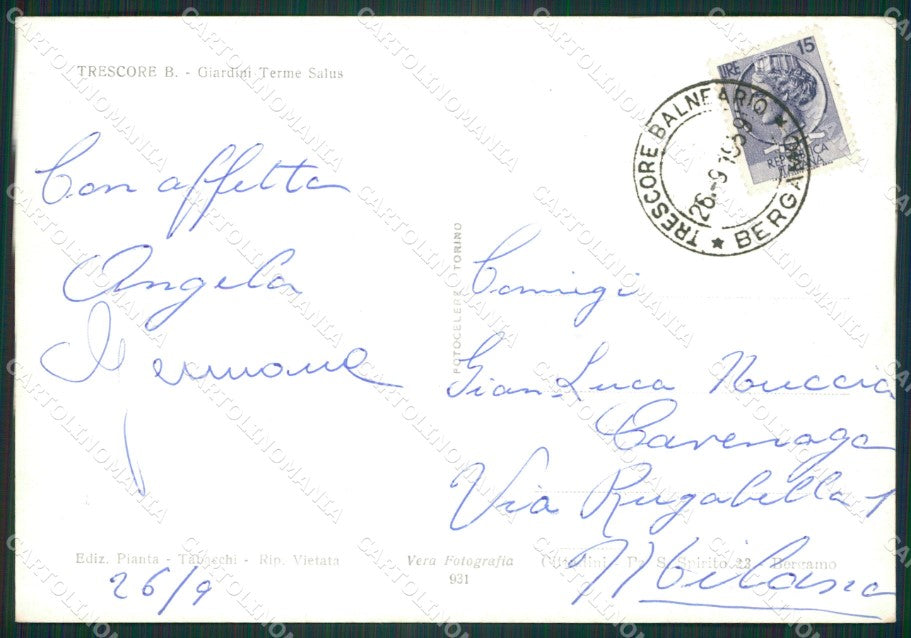 TRESCORE B. - Giardini Terme Salus
LIRE 15
REPUBBLICA
ITALIANA
TRESCORE BALNEARIO ★ BERGAMO ★
26.-9.195
Con affetto
Angela
FOTOCELERE TORINO
Coniugi
Gian Luca Nuccia
Cavenago
Via Rugabella 1
Milano
Ediz. Pianta - Tabacchi - Rip. Vietata
Vera Fotografia
931
Cittadini - P. S. Spirito, 23 - Bergamo
26/9
CARTOLINOMANIA